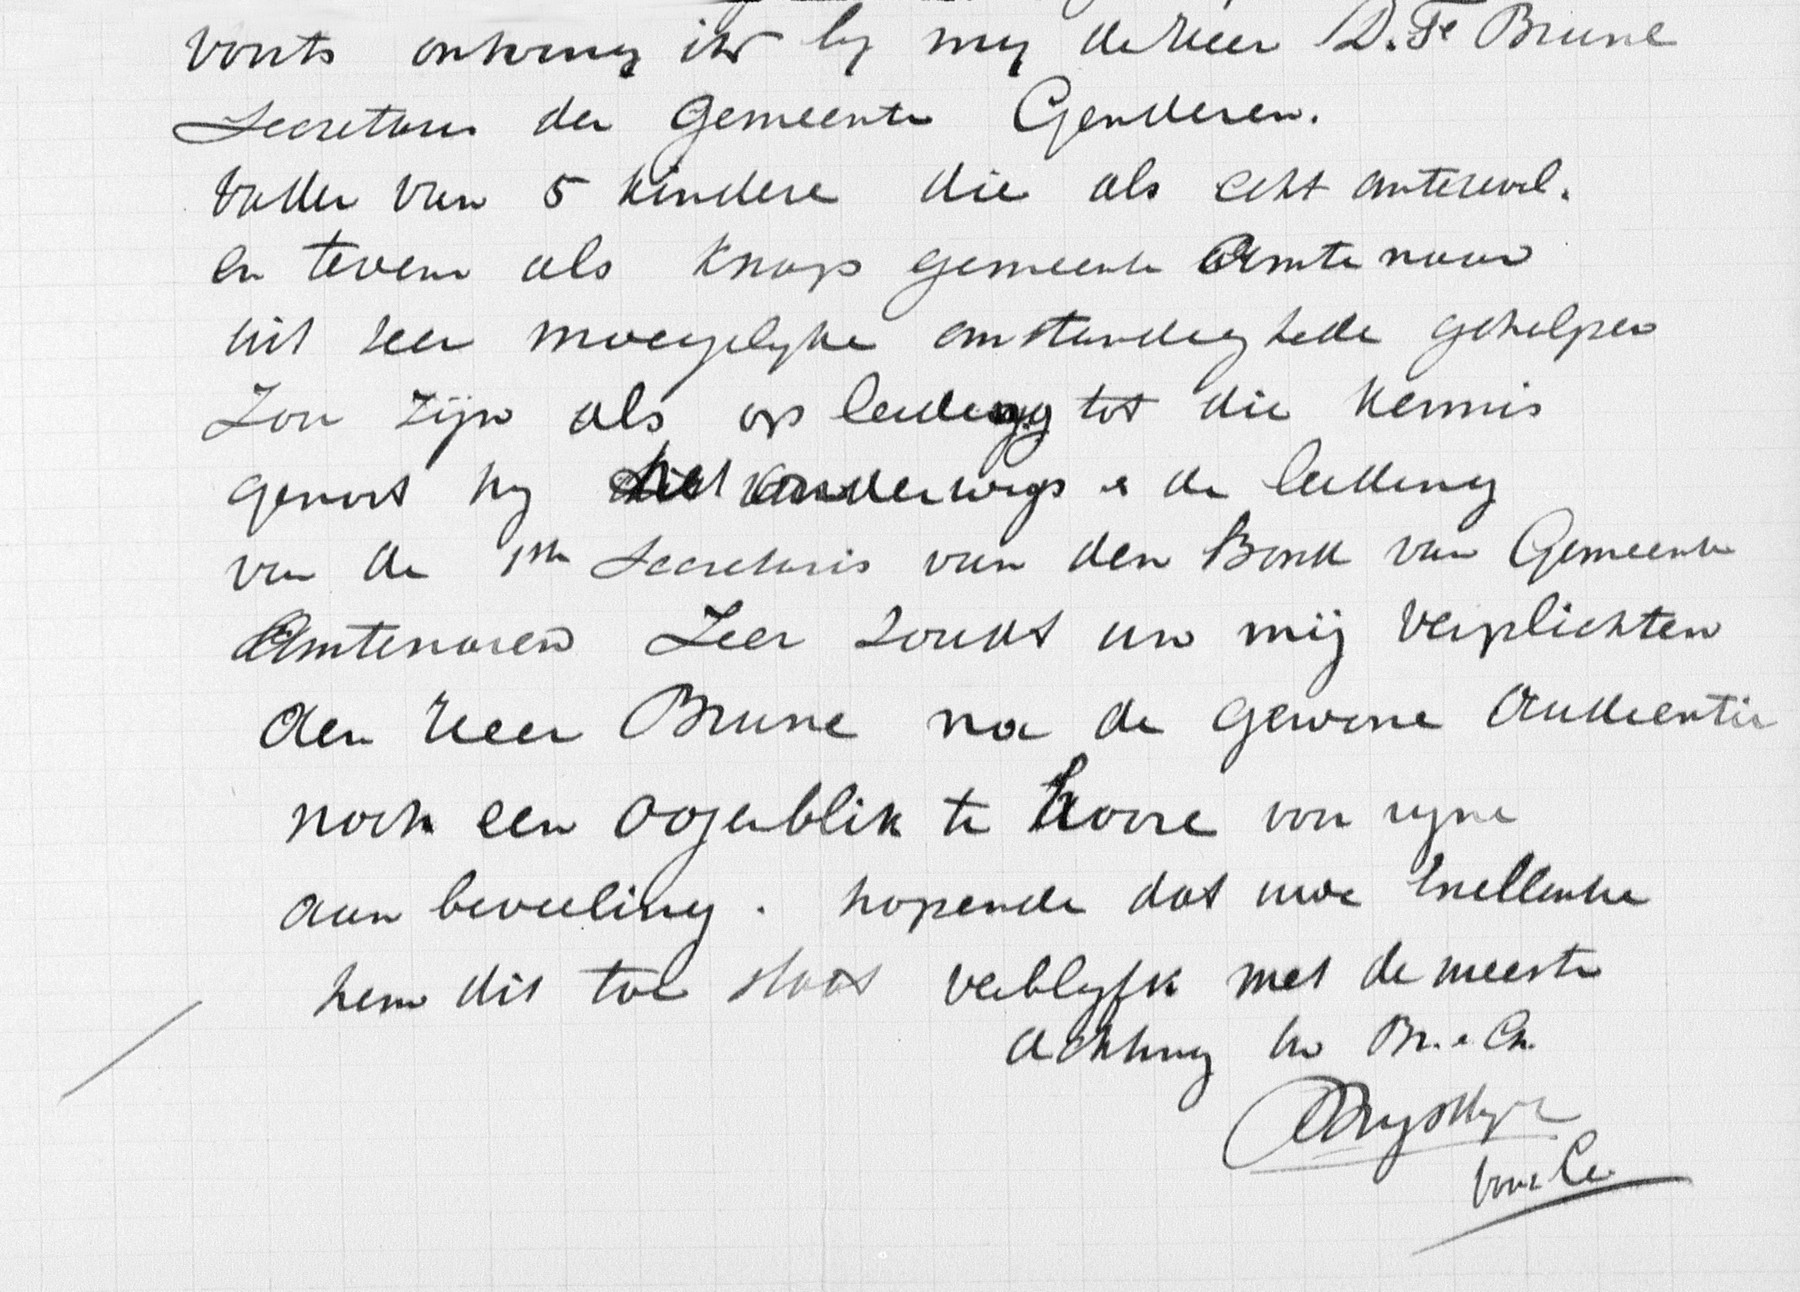 voorts ontving ik by my de heer D. Fe Brune
Secretaris der Gemeente Genderen.
Vader van 5 kindere die als echt anterevol.
en tevens als knap gemeente Amtenaar
uit zeer moeyelyke omstandighede geholpen
Zou zijn als op leidingg tot die kennis
genoot hy het onderwys & de leiding
van de 1ste Secretaris van den Bond van Gemeente
Amtenaren Zeer zoudt uw mij verplichten
den heer Brune na de gewone Audientie
noch een oogenblik te hoore voor zyne
aan beveeling. hopende dat uwe Exellentie
hem dit toe staat verblyfk met de meeste
Achting Uw